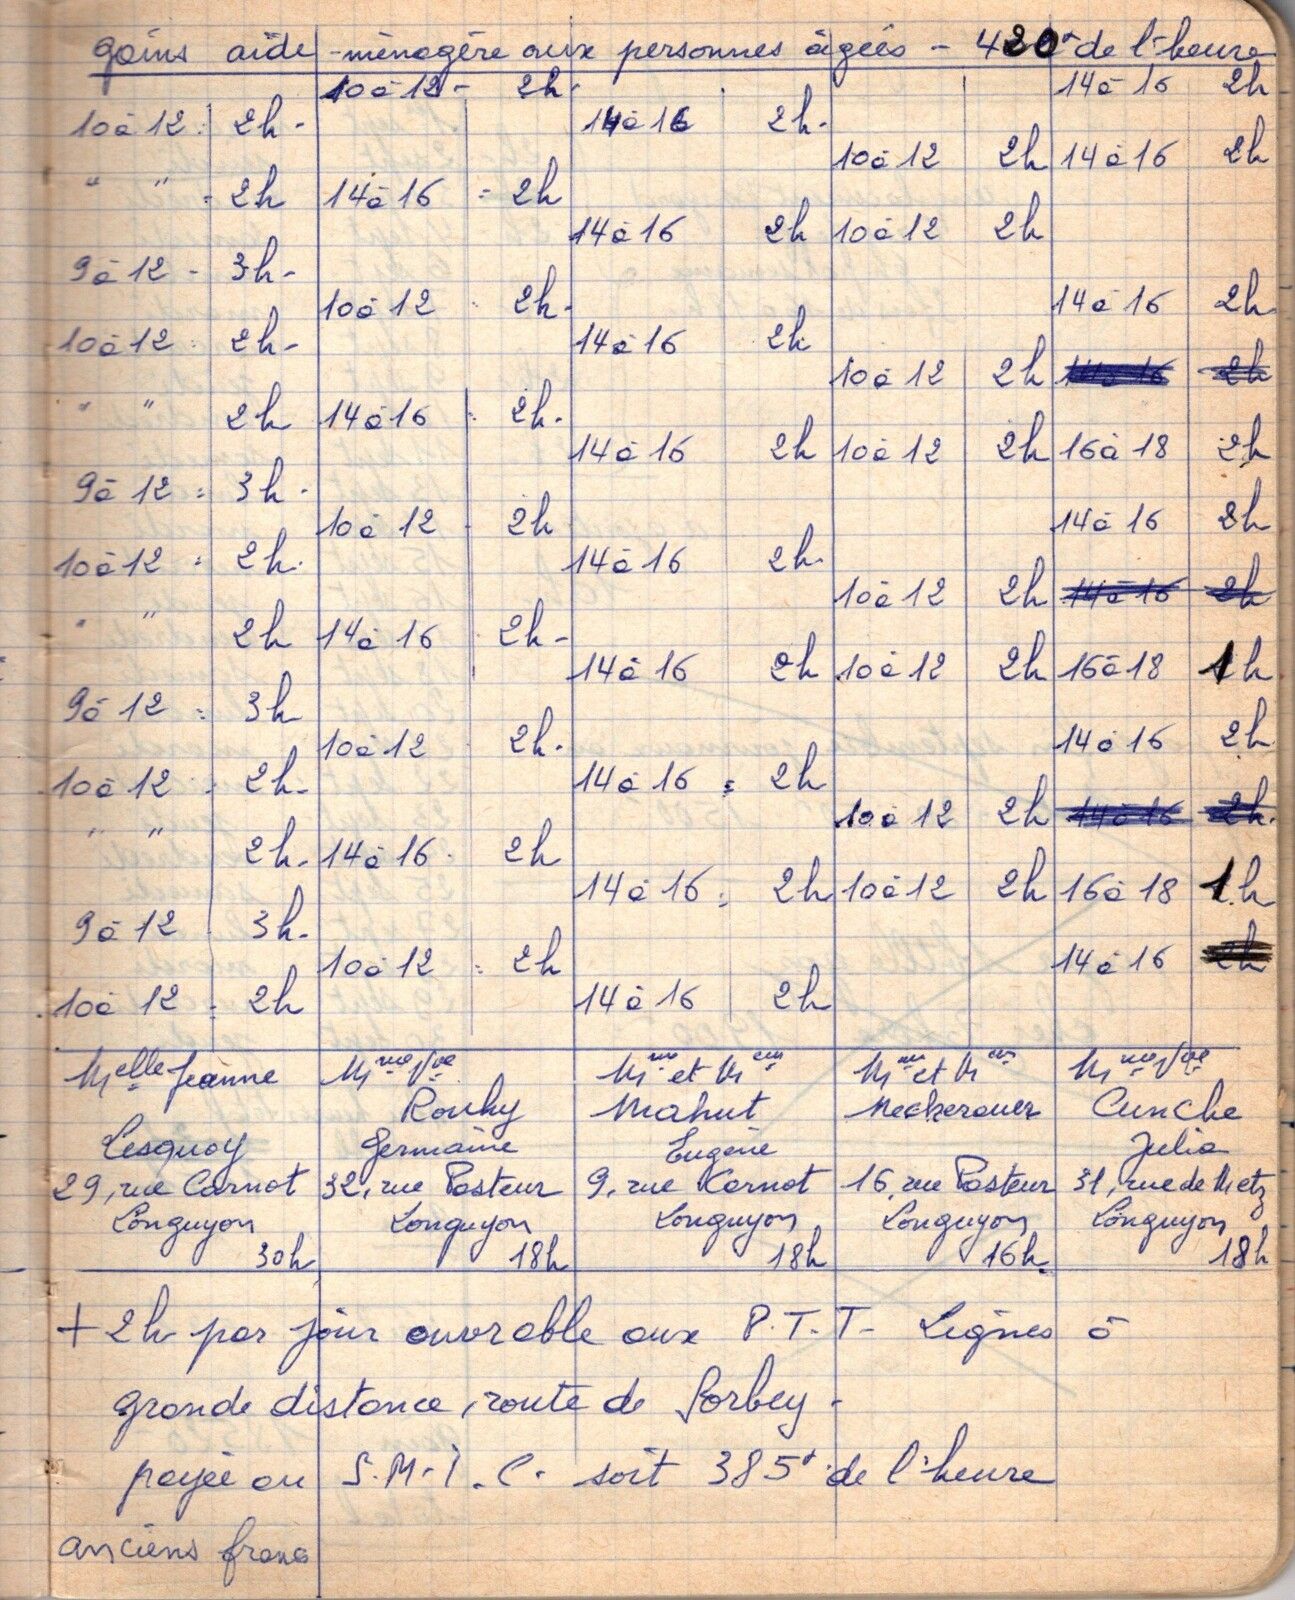 gains aide-ménagère aux personnes âgées - 420f de l'heure
10 à 12 - 2h. 14 à 16 2h
10 à 12 : 2h - 14 à 16 2h.
10 à 12 2h 14 à 16 2h
" " = 2h 14 à 16 = 2h
14 à 16 2h 10 à 12 2h
9 à 12 - 3h -
10 à 12 . 2h. 14 à 16 2h
10 à 12 : 2h - 14 à 16 2h
10 à 12 2h 14 à 16 2h
" " 2h 14 à 16 . 2h.
14 à 16 2h 10 à 12 2h 16 à 18 2h
9 à 12 = 3h.
10 à 12 - 2h 14 à 16 2h
10 à 12 = 2h. 14 à 16 2h.
10 à 12 2h 14 à 16 2h
" " 2h 14 à 16 . 2h -
14 à 16 2h 10 à 12 2h 16 à 18 1h
9 à 12 = 3h
10 à 12 . 2h. 14 à 16 2h
10 à 12 . 2h. 14 à 16 = 2h
10 à 12 2h 14 à 16 2h.
" " 2h. 14 à 16 . 2h
14 à 16 : 2h 10 à 12 2h 16 à 18 1.h
9 à 12 3h.
10 à 12 = 2h 14 à 16 2h
10 à 12 = 2h 14 à 16 2h
Melle Jeanne Mme Vve Mme et Mr Mme et Mr Mme Vve
Rouhy Mahut Meckerauer Cunche
Lesquoy Germaine Eugène Julia
29, rue Carnot 32, rue Pasteur 9, rue Carnot 16, rue Pasteur 31, rue de Metz
Longuyon Longuyon Longuyon Longuyon Longuyon
30h 18h 18h 16h. 18h
+ 2h par jour ouvrable aux P.T.T. Lignes à
grande distance, route de Sorbey -
payée au S.M.I.C. soit 385f de l'heure
anciens francs